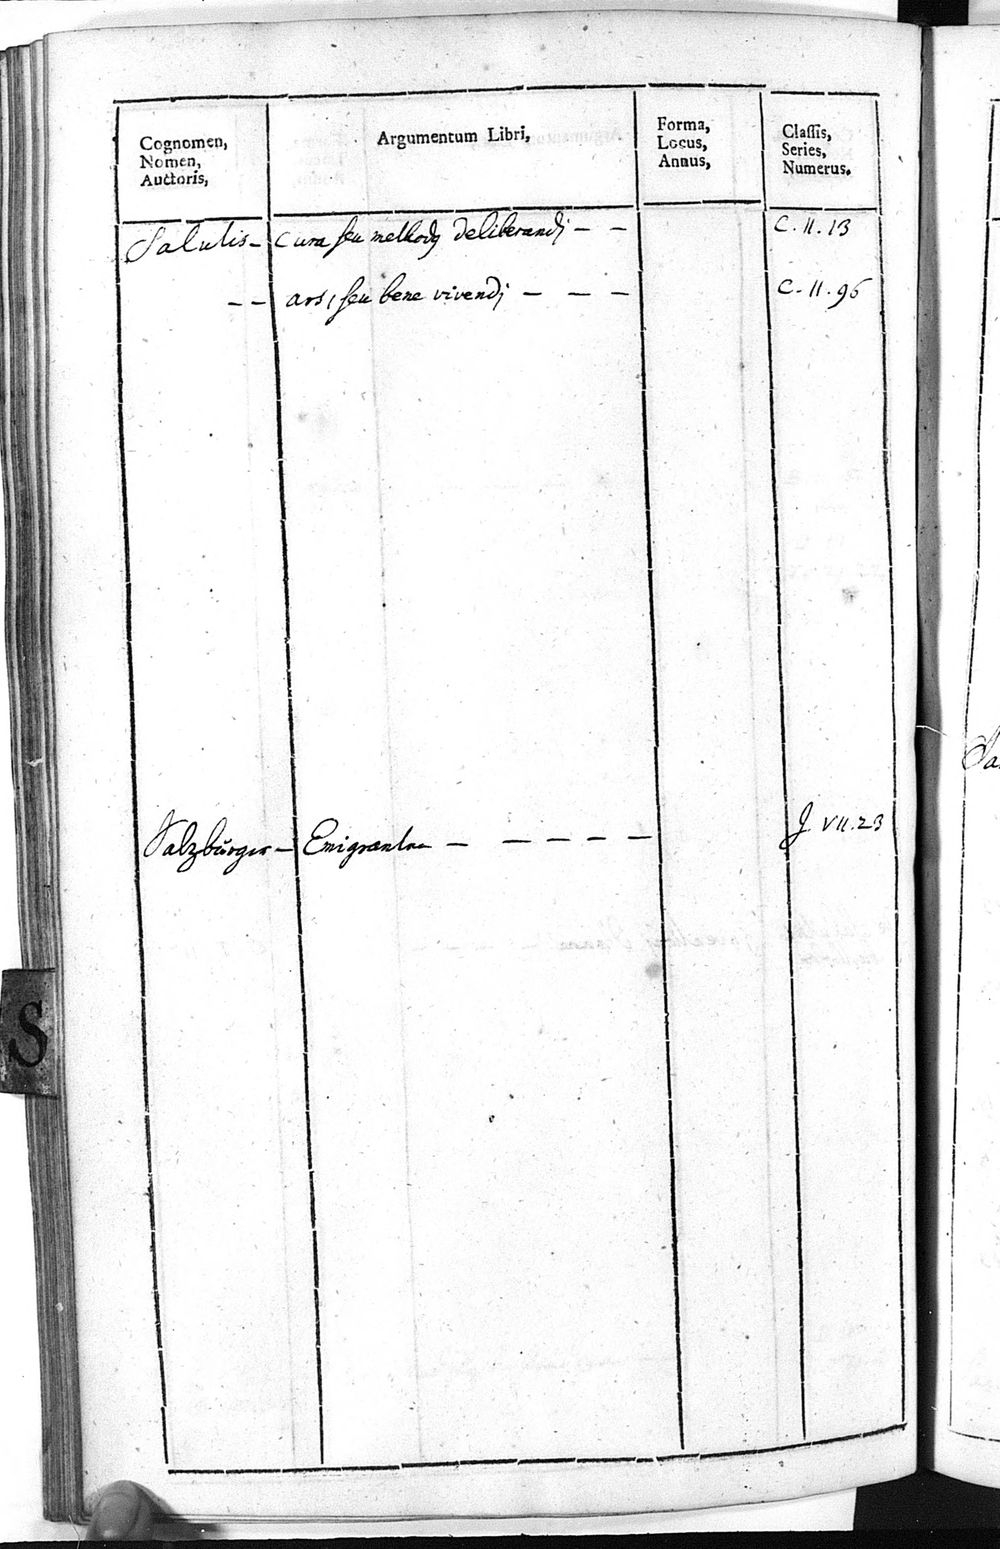 Cognomen,
Nomen,
Auctoris,
Argumentum Libri,
Forma,
Locus,
Annus,
Classis,
Series,
Numerus.
Salutis – cura seu methodg deliberandj – – C. II. 13
– – ars, seu bene vivendj – – – C. II. 96
Salzburger – Emigranten – – – – – J VII. 23
S
Sa